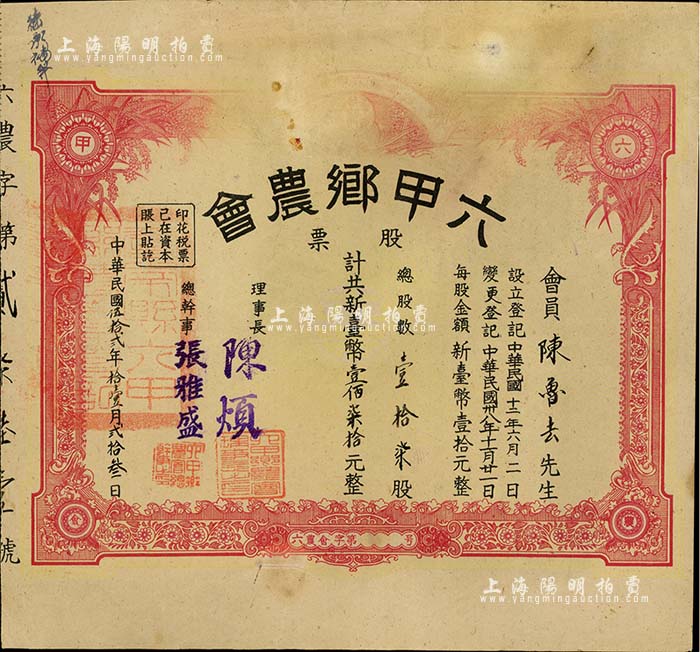 六甲鄉農會
股票
會員陳魯去先生
設立登記中華民國十二年六月二日
變更登記中華民國卅八年十月廿一日
每股金額新臺幣壹拾元整
總股數壹拾柒股
計共新臺幣壹佰柒拾元整
理事長
陳煩
總幹事
張雅盛
印花稅票
已在資本
賬上貼訖
中華民國伍拾弍年拾壹月弍拾叁日
六農字第貳柒陸壹號
甲
六
會
農
六農會字第
號
上海陽明拍賣
www.yangmingauction.com
上海陽明拍賣
www.yangmingauction.com
上海陽明拍賣
www.yangmingauction.com